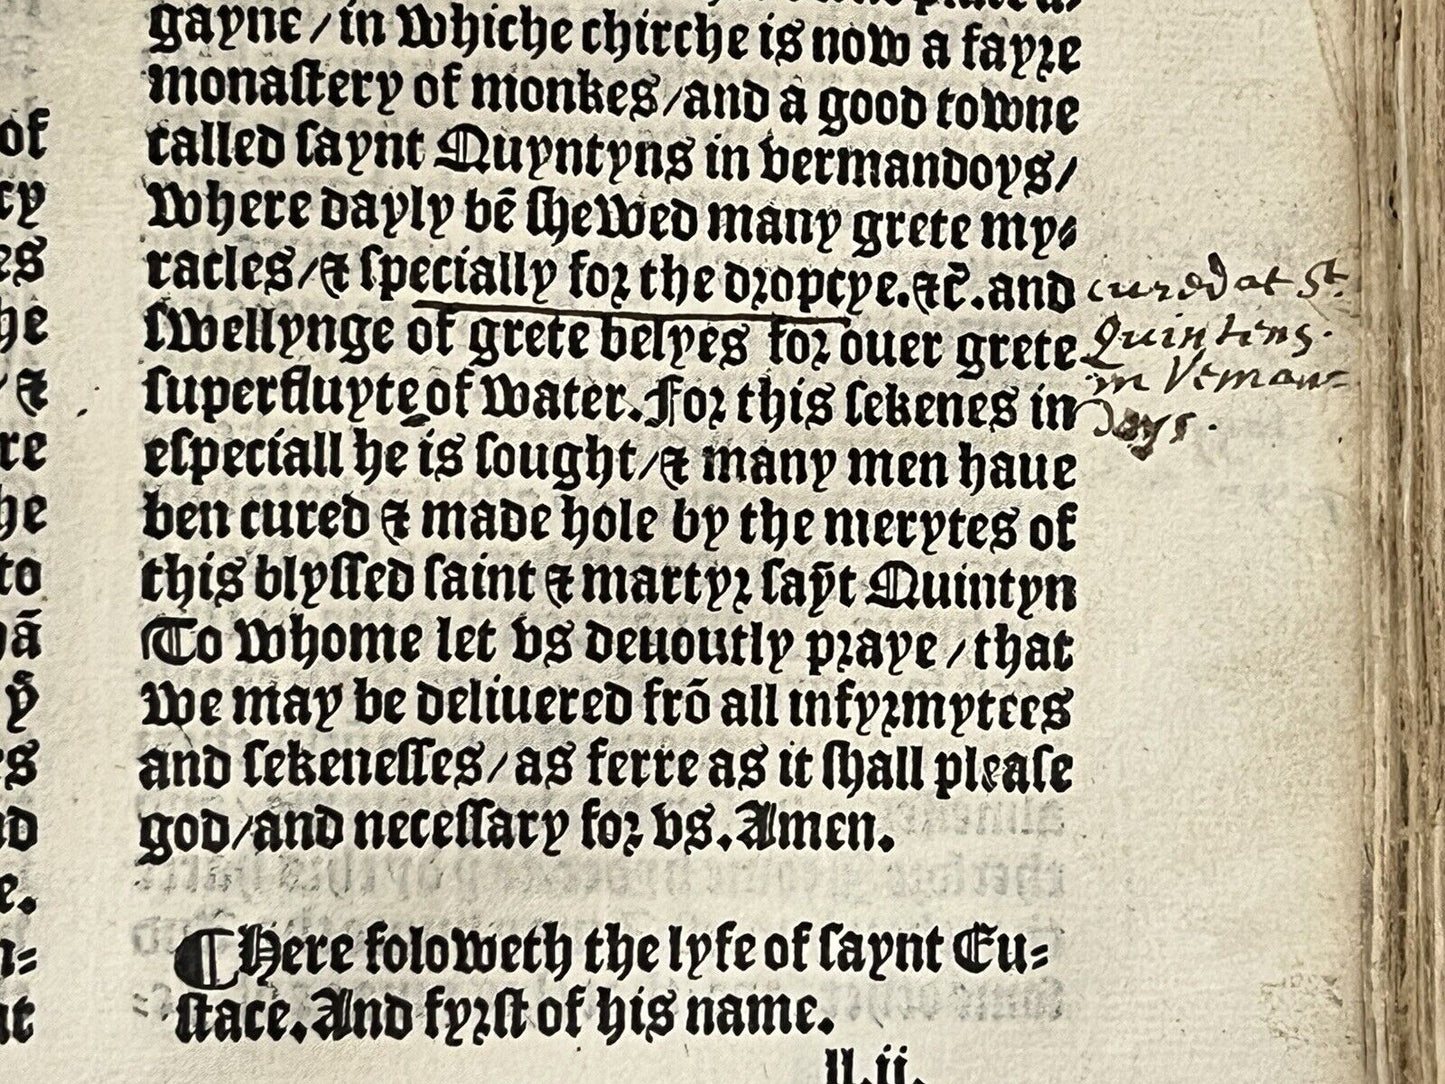 of
cy
es
he
/ &
re
he
to
ā
ẏ
s
d
e.
n=
nt
gayne / in whiche chirche is now a fayre
monastery of monkes / and a good towne
called saynt Quyntyns in vermandoys /
where dayly bē shewed many grete my=
racles / & specially for the dropcye. &c̄. and
swellynge of grete belyes for ouer grete
superfluyte of water. For this sekenes in
especiall he is sought / & many men haue
ben cured & made hole by the merytes of
this blyssed saint & martyr saȳt Quintyn
To whome let vs deuoutly praye / that
we may be deliuered frō all infyrmytees
and sekenesses / as ferre as it shall please
god / and necessary for vs. Amen.
¶ Here foloweth the lyfe of saynt Eu=
stace. And fyrst of his name.
ll.ii.
cured at St.
Quintins.
in Veman=
Doys.